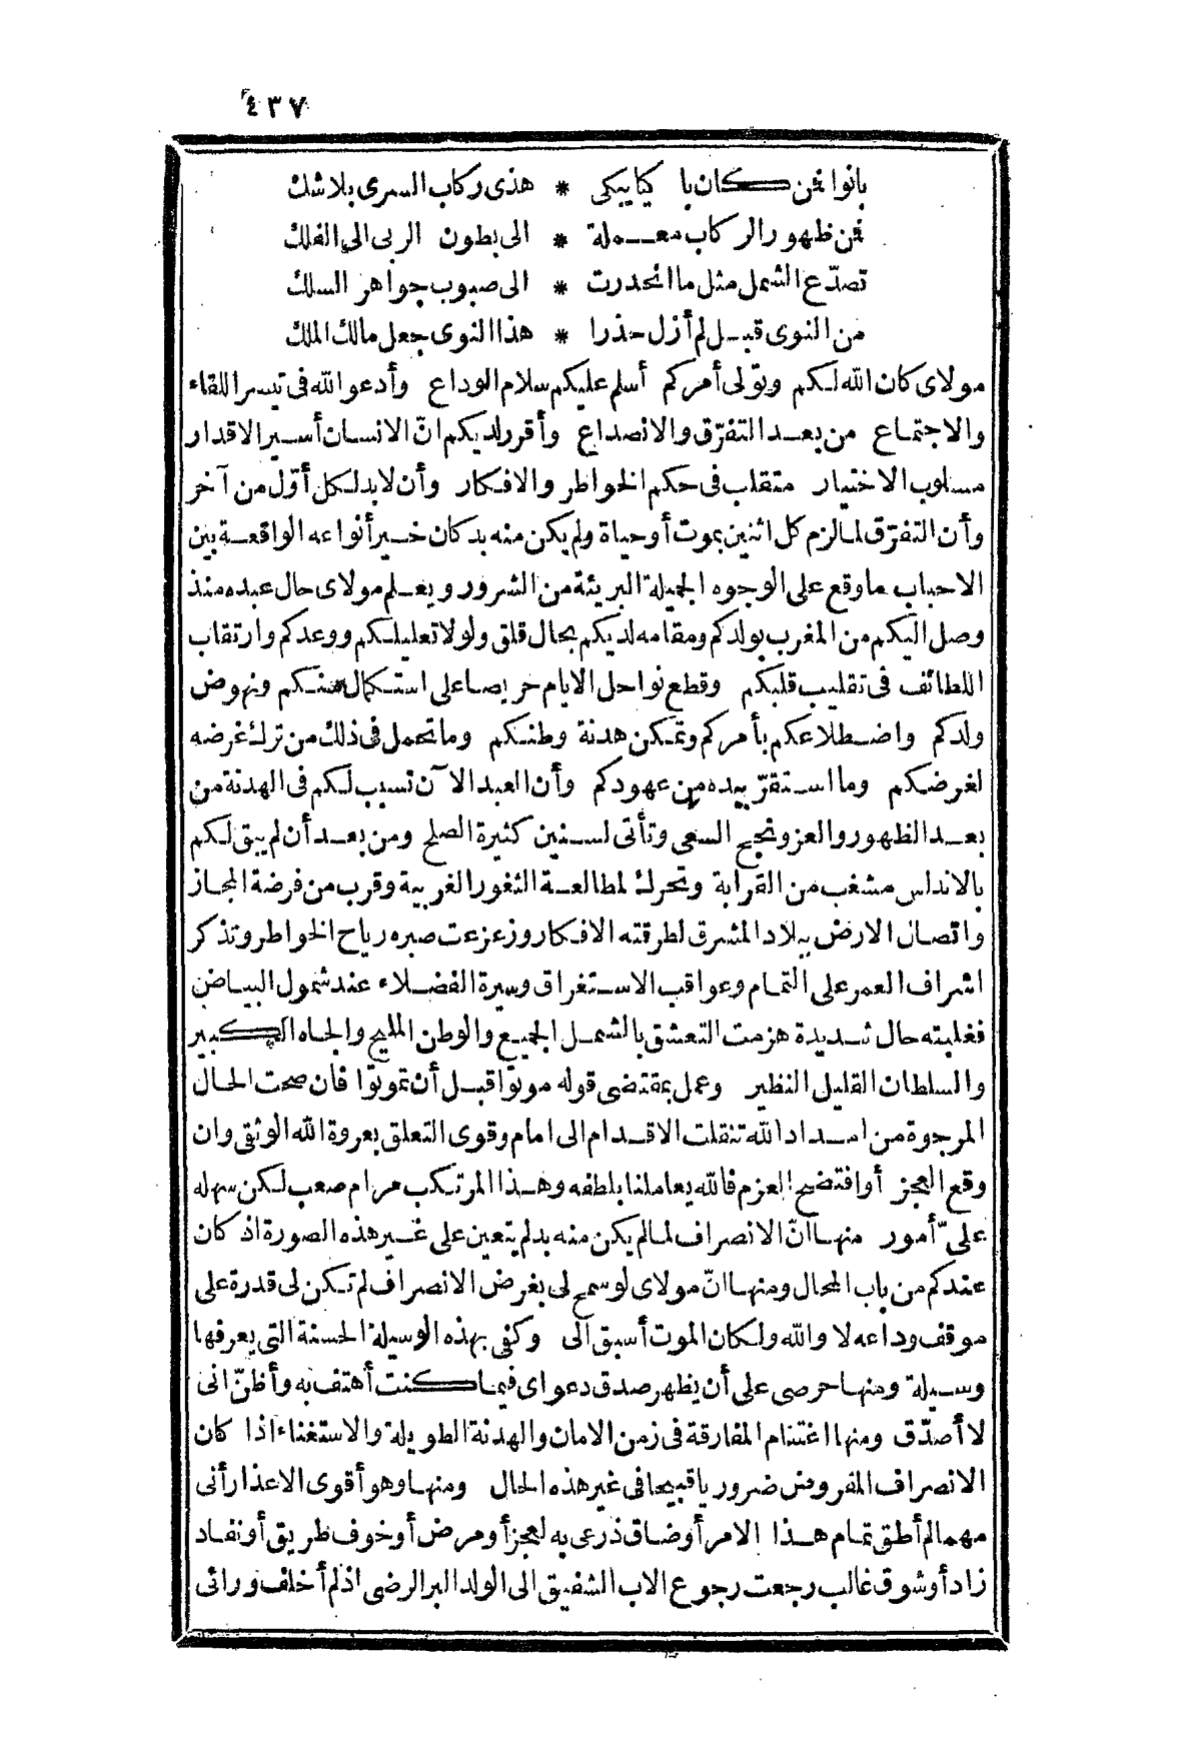 ٤٣٧
بانوا فمن كان با كيا يبكى * هذى ركاب السرى بلا شك
فمن ظهور الركاب معملة * الى بطون الربى الى الفلك
تصدّع الشمل مثل ما انحدرت * الى صبوب جواهر السلك
من النوى قبل لم أزل حذرا * هذا النوى جعل مالك الملك
مولاى كان الله لكم وتولى أمركم أسلم عليكم سلام الوداع وأدعو الله فى تيسر اللقاء
والاجتماع من بعد التفرّق والانصداع وأقرر لديكم انّ الانسان أسير الاقدار
مسلوب الاختيار متقلب فى حكم الخواطر والافكار وأن لا بد لكل أوّل من آخر
وأن التفرّق لما لزم كل اثنين بموت أو حياة ولم يكن منه بد كان خير أنواعه الواقعة بين
الاحباب ما وقع على الوجوه الجميلة البريئة من الشرور ويعلم مولاى حال عبده منذ
وصل اليكم من المغرب بولدكم ومقامه لديكم بحال قلق ولولا تعليلكم ووعدكم وارتقاب
اللطائف فى تقليب قلبكم وقطع نواحل الايام حريصا على استكمال سنكم ونهوض
ولدكم واضطلاعكم بأمركم وتمكن هدنة وطنكم وما تحمل فى ذلك من ترك غرضه
لغرضكم وما استقرّ بيده من عهودكم وأن العبد الآن تسبب لكم فى الهدنة من
بعد الظهور والعز ونجح السعى وتأتى لسنين كثيرة الصلح ومن بعد أن لم يبق لكم
بالاندلس مشغب من القرابة وتحرك لمطالعة الثغور الغربية وقرب من فرضة المجاز
واتصال الارض ببلاد المشرق لطرقته الافكار وزعزعت صبره رياح الخواطر وتذكر
اشراف العمر على التمام وعواقب الاستغراق وسيرة الفضلاء عند شمول البياض
فغلبته حال شديدة هزمت التعشق بالشمل الجميع والوطن المليح والجاه الكبير
والسلطان القليل النظير وعمل بمقتضى قوله موتوا قبل أن تموتوا فان صحت الحال
المرجوة من امداد الله تنقلت الاقدام الى امام وقوى التعلق بعروة الله الوثقى وان
وقع العجز أو افتضح العزم فالله يعاملنا بلطفه وهذا المرتكب مرام صعب لكن سهله
علىّ أمور منها انّ الانصراف لما لم يكن منه بد لم يتعين على غير هذه الصورة اذ كان
عندكم من باب المحال ومنها انّ مولاى لو سمح لى بغرض الانصراف لم تكن لى قدرة على
موقف وداعه لا والله ولكان الموت أسبق الى وكفى بهذه الوسيلة الحسنة التى يعرفها
وسيلة ومنها حرصى على أن يظهر صدق دعواى فيما كنت أهتف به وأظنّ انى
لا أصدّق ومنها اغتنام المفارقة فى زمن الامان والهدنة الطويلة والاستغناء اذا كان
الانصراف المفروض ضروريا قبيحا فى غير هذه الحال ومنها وهو أقوى الاعذار أنى
مهما لم أطق تمام هذا الامر أو ضاق ذرعى به لعجز أو مرض أو خوف طريق أو نفاد
زاد أو شوق غالب رجعت رجوع الاب الشفيق الى الولد البر الرضى اذ لم أخلف ورائى